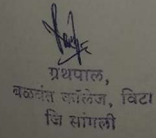 ग्रंथपाल,
बळवंत कॉलेज, विटा
जि सांगली